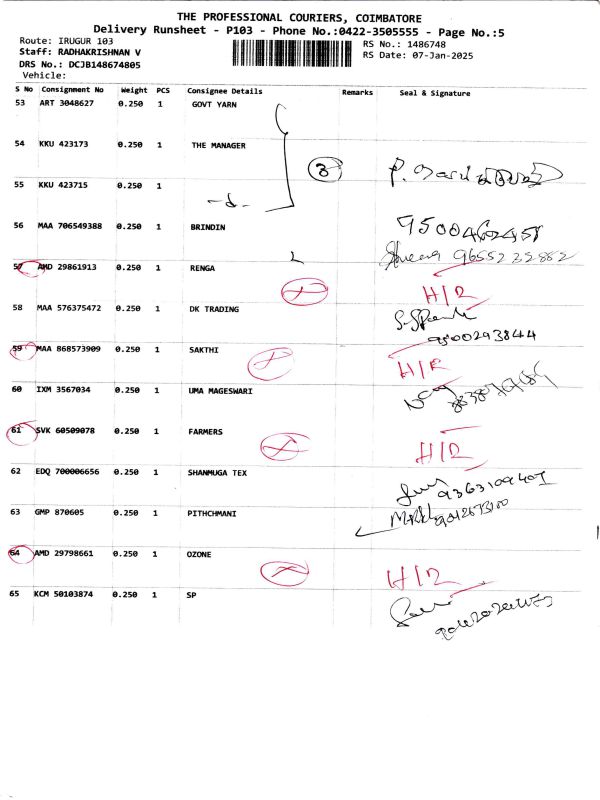 THE PROFESSIONAL COURIERS, COIMBATORE
Delivery Runsheet - P103 - Phone No.:0422-3505555 - Page No.:5
Route: IRUGUR 103
RS No.: 1486748
Staff: RADHAKRISHNAN V
RS Date: 07-Jan-2025
DRS No.: DCJB148674805
Vehicle:
S No Consignment No Weight PCS Consignee Details Remarks Seal & Signature
53 ART 3048627 0.250 1 GOVT YARN
54 KKU 423173 0.250 1 THE MANAGER
3
55 KKU 423715 0.250 1
56 MAA 706549388 0.250 1 BRINDIN
57 AMD 29861913 0.250 1 RENGA
H/R
58 MAA 576375472 0.250 1 DK TRADING
9500293844
59 MAA 868573909 0.250 1 SAKTHI
H/R
60 IXM 3567034 0.250 1 UMA MAGESWARI
61 SVK 60509078 0.250 1 FARMERS
H/R
62 EDQ 700006656 0.250 1 SHANMUGA TEX
63 GMP 870605 0.250 1 PITHCHMANI
64 AMD 29798661 0.250 1 OZONE
H/R
65 KCM 50103874 0.250 1 SP